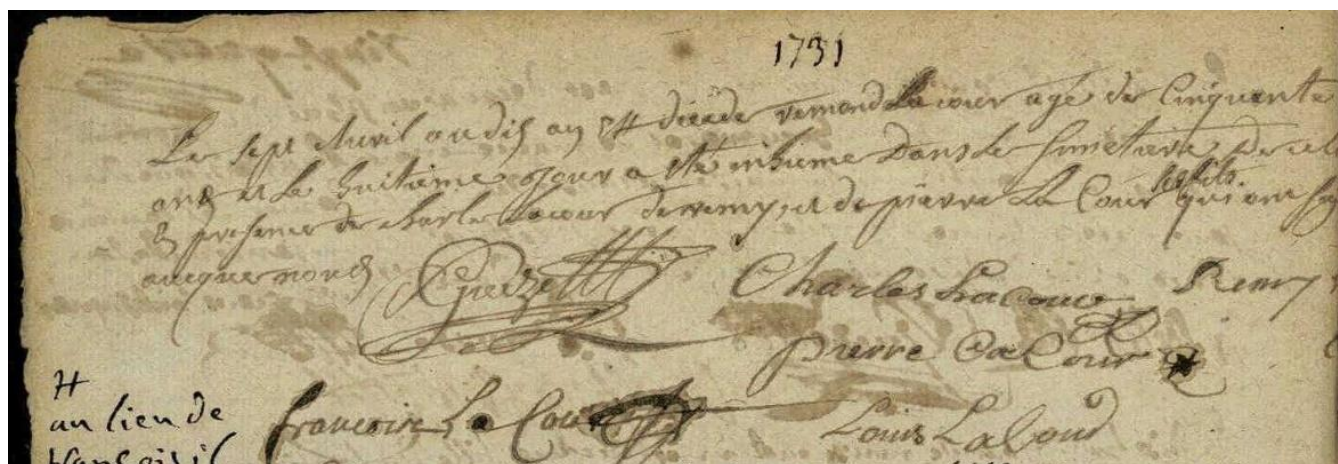 1731
Le sept Avril audis an est decede remond La cour agé de Cinquante
ans et Le huitieme jour a eté inhumé Dans Le Simetiere de
presence de charle Lacour de remy, et de pierre La Cour ses fils qui ont
avecque nous
Charles Lacour Remy
pierre La Cour
francois La Cour Louis Lacour
#
au lieu de